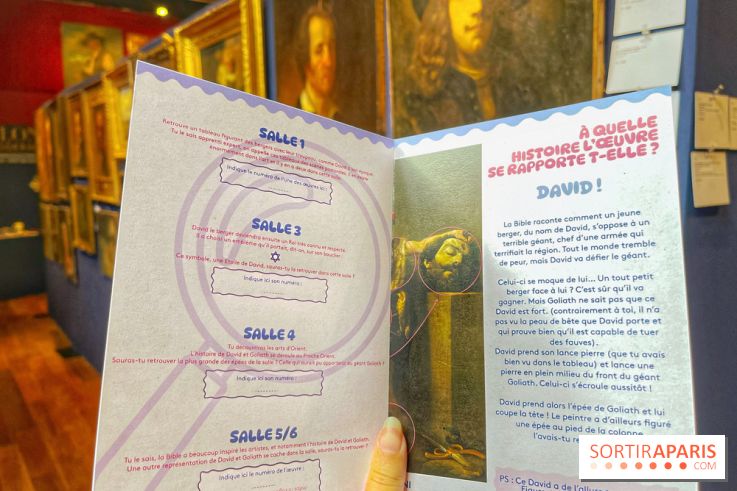 SALLE 1
Retrouve un tableau figurant des bergers avec leur troupeau, comme David à son époque.
Tu le sais apprenti expert, on appelle ces tableaux des scènes pastorales. Il en existe
énormément dans l'art et il y en a deux dans cette salle.
Indique le numéro de l'une des œuvres ici :
SALLE 3
David le berger deviendra ensuite un Roi très connu et respecté.
Il a choisi un emblème qu'il portait, dit-on, sur son bouclier.
Ce symbole, une Etoile de David, sauras-tu le retrouver dans cette salle ?
Indique ici son numéro :
SALLE 4
Tu découvriras les arts d'Orient.
L'histoire de David et Goliath se déroule au Proche Orient.
Sauras-tu retrouver la plus grande des épées de la salle ? Celle qui aurait pu appartenir au géant Goliath ?
Indique ici son numéro :
SALLE 5/6
Tu le sais, la Bible a beaucoup inspiré les artistes, et notamment l'histoire de David et Goliath.
Une autre représentation de David et Goliath se cache dans la salle, sauras-tu la retrouver ?
Indique ici le numéro de l'œuvre :
À QUELLE
HISTOIRE L'ŒUVRE
SE RAPPORTE T-ELLE ?
DAVID !
La Bible raconte comment un jeune
berger, du nom de David, s'oppose à un
terrible géant, chef d'une armée qui
terrifiait la région. Tout le monde tremble
de peur, mais David va défier le géant.
Celui-ci se moque de lui... Un tout petit
berger face à lui ? C'est sûr qu'il va
gagner. Mais Goliath ne sait pas que ce
David est fort. (contrairement à toi, il n'a
pas vu la peau de bête que David porte et
qui prouve bien qu'il est capable de tuer
des fauves).
David prend son lance pierre (que tu avais
bien vu dans le tableau) et lance une
pierre en plein milieu du front du géant
Goliath. Celui-ci s'écroule aussitôt !
David prend alors l'épée de Goliath et lui
coupe la tête ! Le peintre a d'ailleurs figuré
une épée au pied de la colonne,
l'avais-tu
PS : Ce David a de l'allure
NI
SORTIRAPARIS
.COM